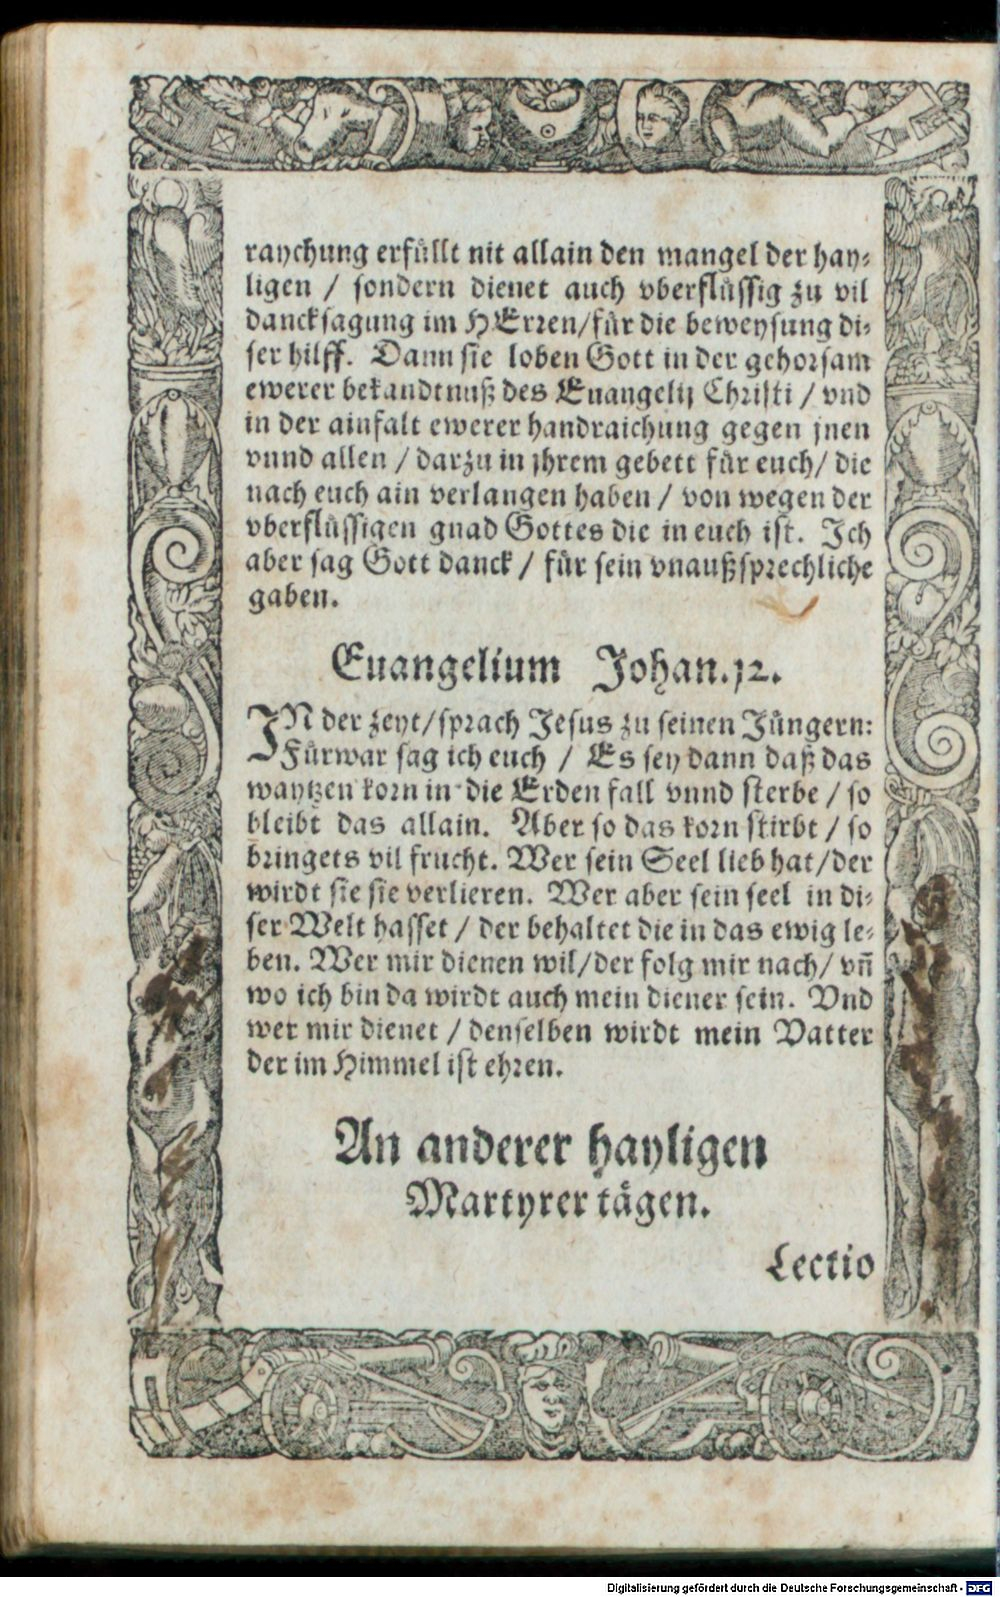 raychung erfüllt nit allain den mangel der hay-
ligen / sondern dienet auch vberflüssig zu vil
dancksagung im HErren/für die beweysung di-
ser hilff. Dann sie loben Gott in der gehorsam
ewerer bekandtnuß des Euangelij Christi / vnd
in der ainfalt ewerer handraichung gegen jnen
vnnd allen / darzu in jhrem gebett für euch/ die
nach euch ain verlangen haben / von wegen der
vberflüssigen gnad Gottes die in euch ist. Ich
aber sag Gott danck / für sein vnaußsprechliche
gaben.
Euangelium Johan.12.
IN der zeyt/sprach Jesus zu seinen Jüngern:
Fürwar sag ich euch / Es sey dann daß das
waytzen korn in die Erden fall vnnd sterbe / so
bleibt das allain. Aber so das korn stirbt / so
bringets vil frucht. Wer sein Seel lieb hat/der
wirdt sie sie verlieren. Wer aber sein seel in di-
ser Welt hasset / der behaltet die in das ewig le-
ben. Wer mir dienen wil/der folg mir nach/ vñ
wo ich bin da wirdt auch mein diener sein. Vnd
wer mir dienet / denselben wirdt mein Vatter
der im Himmel ist ehren.
An anderer hayligen
Martyrer tägen.
Lectio
Digitalisierung gefördert durch die Deutsche Forschungsgemeinschaft - DFG